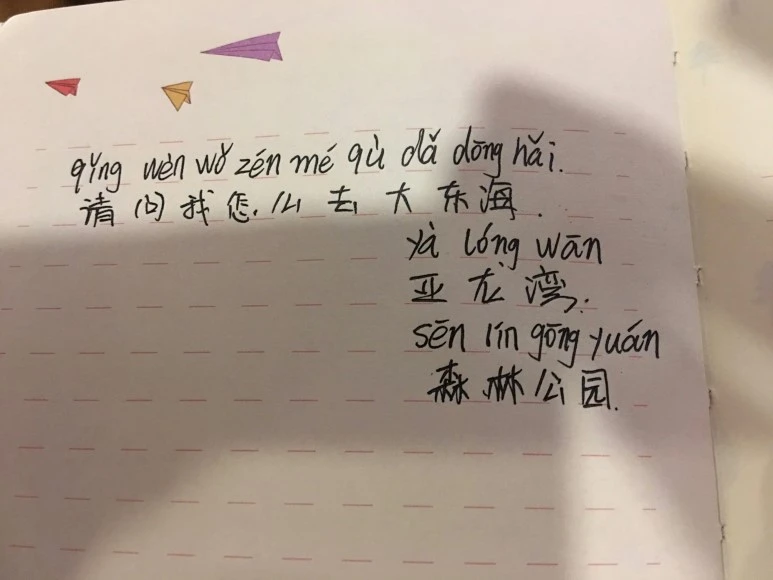 qǐng wèn wǒ zén mé qù dǎ dōng hǎi.
请问我怎么去大东海.
yà lóng wān
亚龙湾.
sēn lín gōng yuán
森林公园.